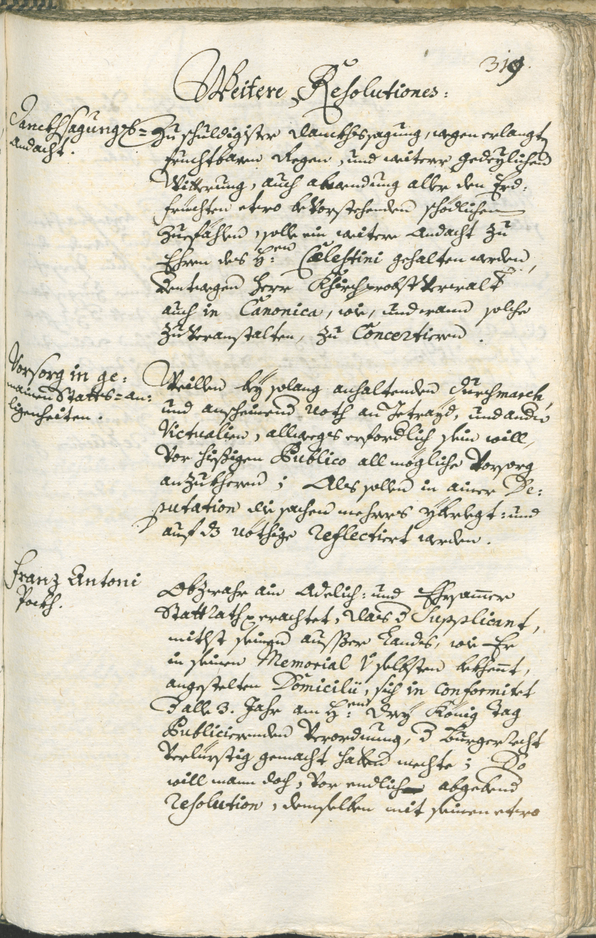 319
Weitere Resolutiones:
Danckhsagungs=
Andacht.
Zu schuldigister Danckhsagung, wegen erlangt
fruchtbaren Regen, und weiterer gedeylichen
Witterung, auch abwendung aller den Erd-
früchten etwo bevorstehenden schödlichen
Zuefählen, solle ein weitere Andacht zu
Ehren des H:en Cælestini gehalten werden,
deswegen Herr Khürchprobst Verwalt
auch in Canonica, wie, und wann solche
zu Veranstalten, zu Concertieren.
Vorsorg in ge:
mainen Statts=an:
ligenheiten.
Weillen bey solang anhaltenden Durchmarch,
und anscheinend Noth an Getrayd, und andern
Victualien, allweegs erfordlich sein will,
vor hiesigen Publico all mögliche Vorsorg
anzukheren; Als sollen in ainer De:
putation die sachen mehrers yberlegt: und
auf dz nöthige reflectiert werden.
Franz Antoni
Pockh.
Obzwahr ain Adelich: und Ehrsammer
Stattrath erachtet, dass d Supplicant,
mitlst seines ausser Landts, wie Er
in seinen Memorial selbsten bekhent,
angestelten Domicilii, sich in conformitet
d alle 3. Jahr am H:en Drey König Tag
Publicierenden Verordnung, d Burgerrecht
Verlurstig gemacht haben mechte; So
will mann doch, vor endlich abgebend
resolution, demselben mit seinen etwo